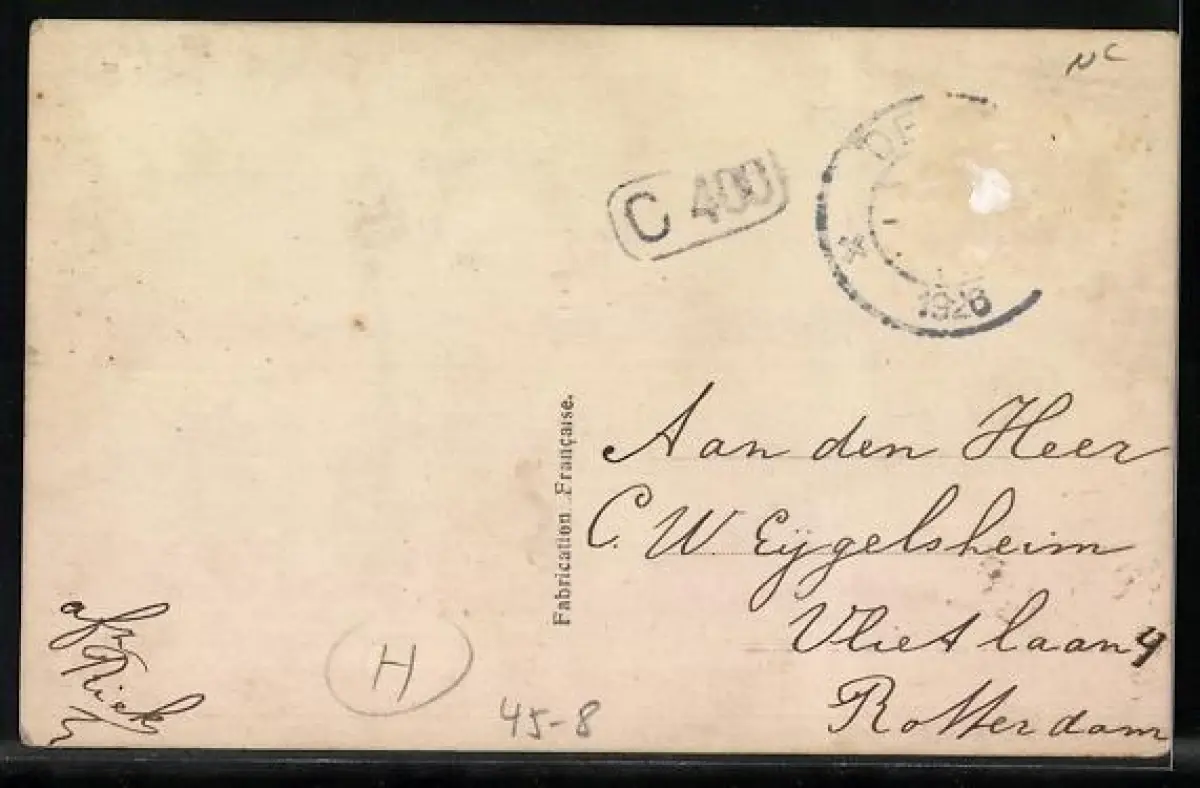 NC
C 400
DE
1926
Fabrication Française.
Aan den Heer
C. W. Eijgelsheim
Vlietlaan 4
Rotterdam
afz
Riek
H
45-8